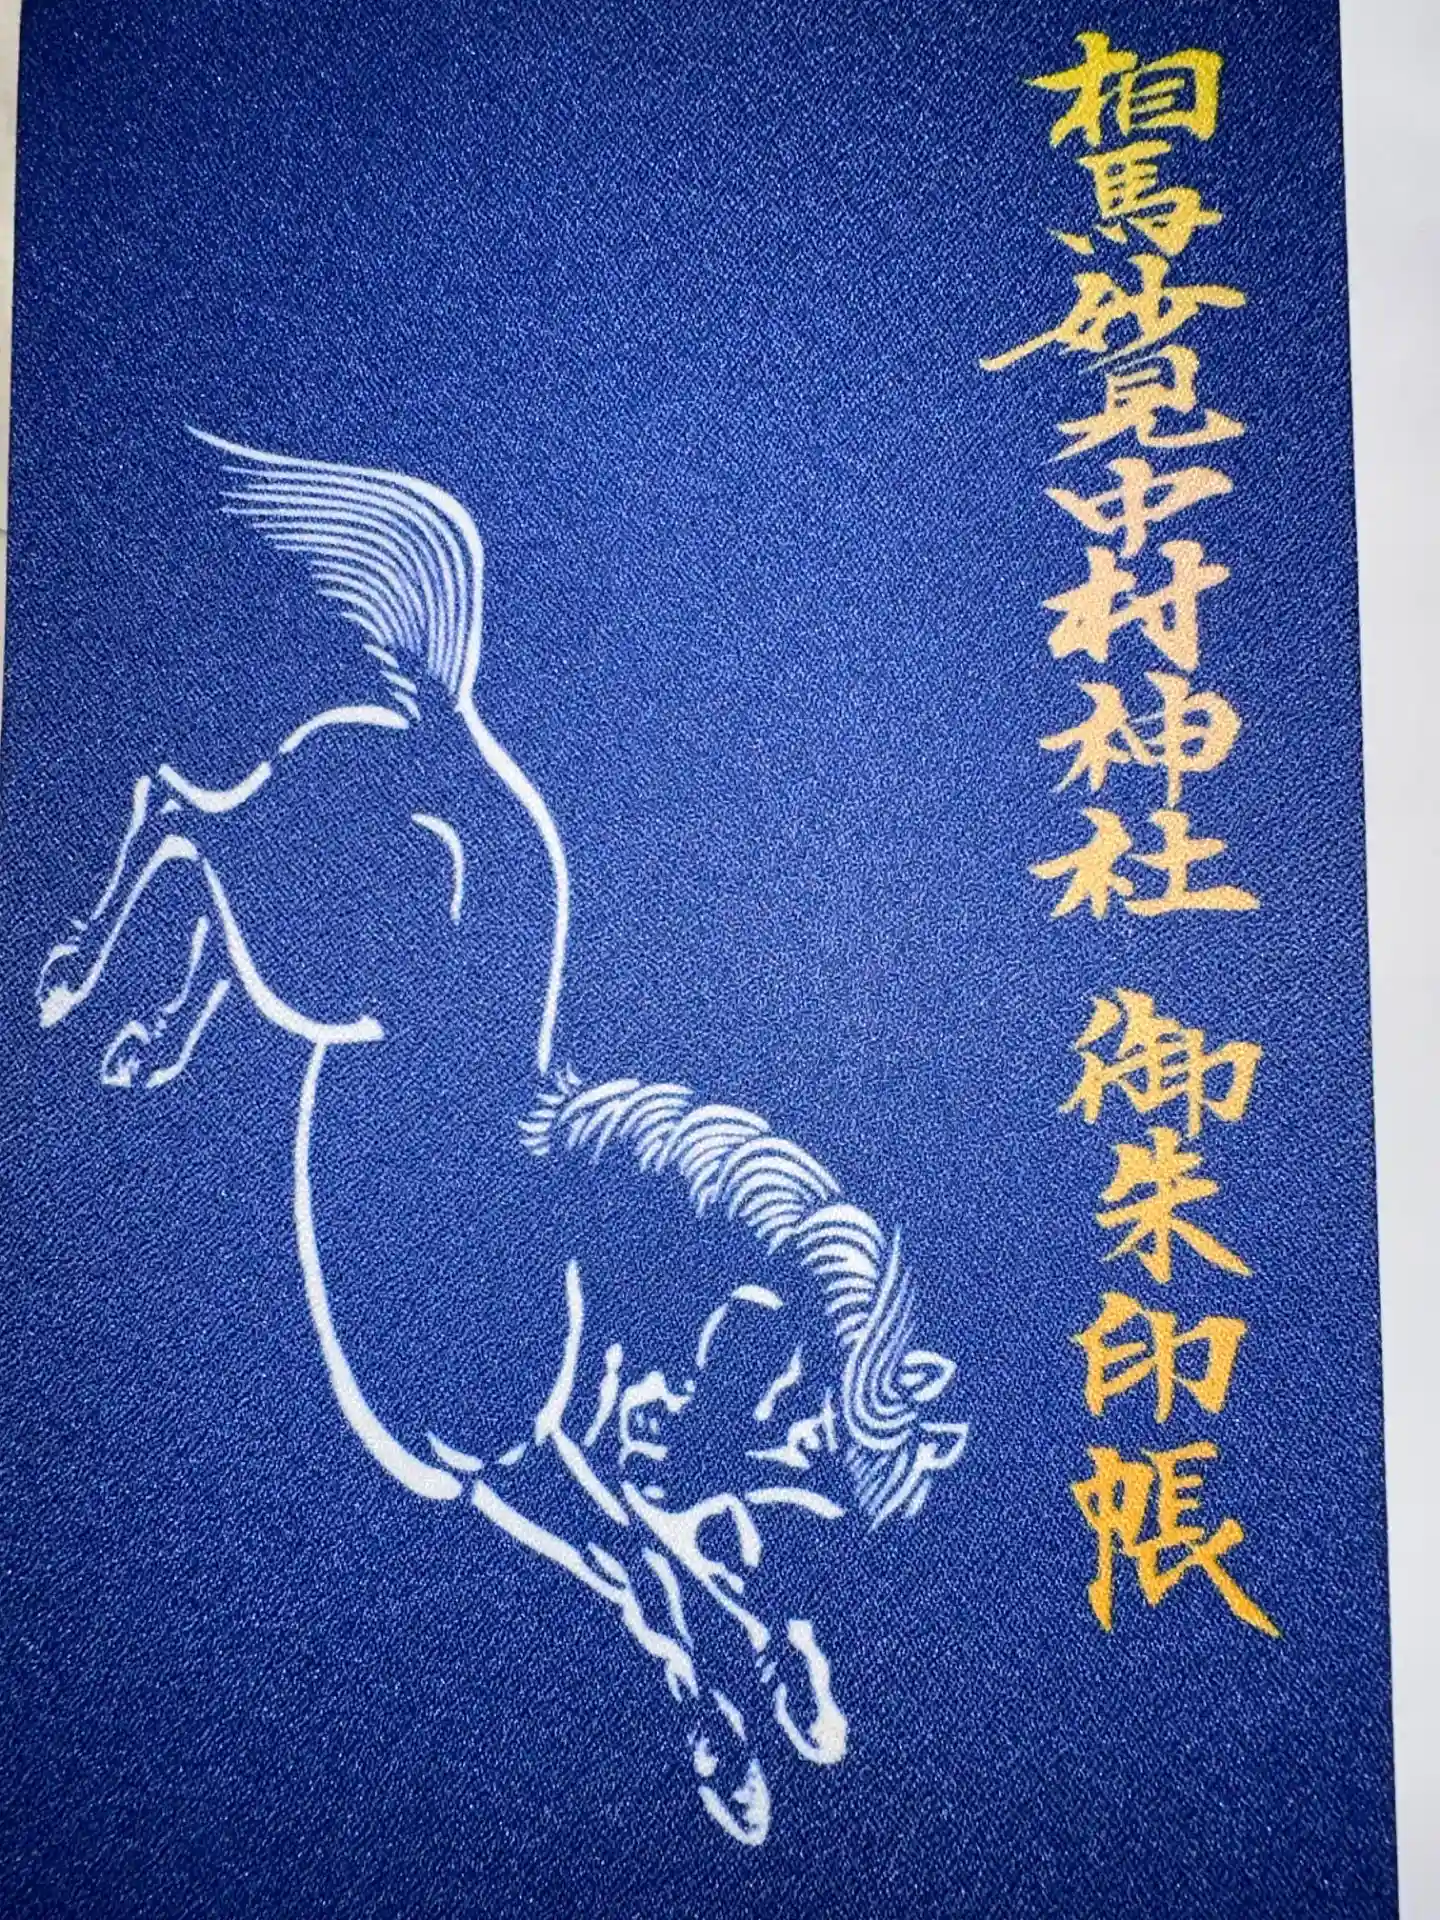 相馬妙見中村神社 御朱印帳